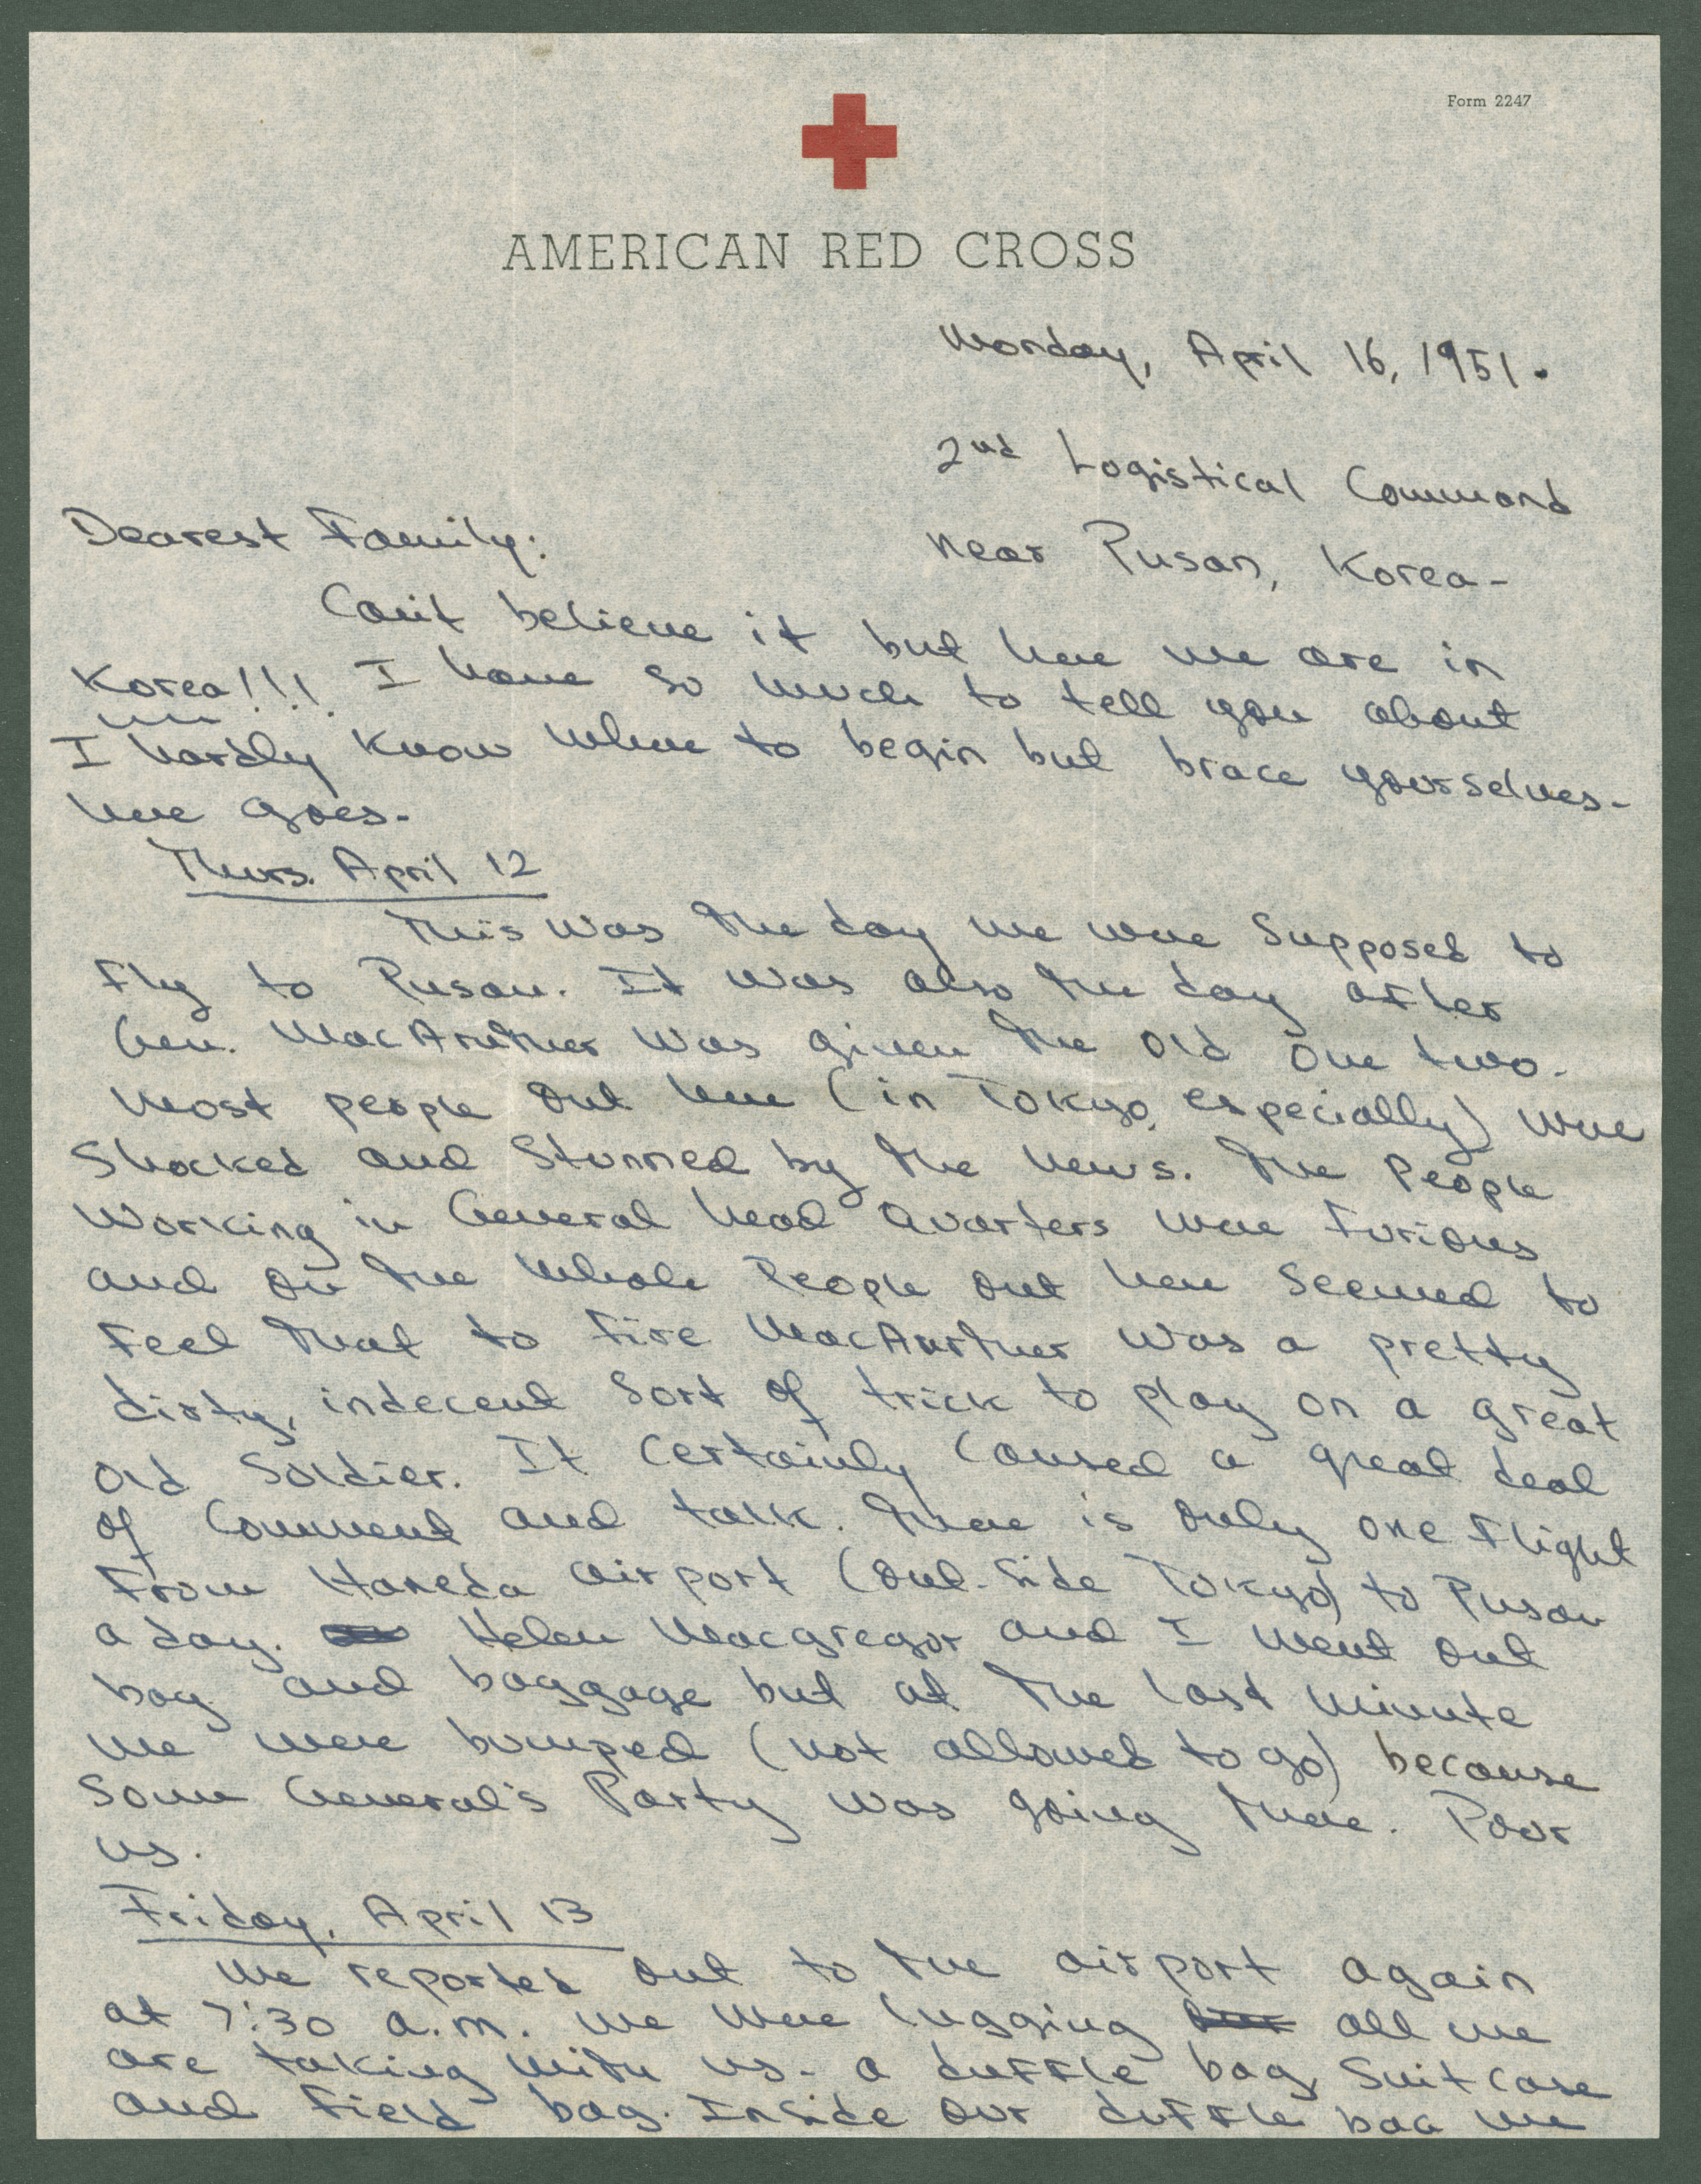 Form 2247
AMERICAN RED CROSS
Monday, April 16, 1951.
2nd Logistical Command
Near Pusan, Korea-
Dearest Family:
Can't believe it but here we are in
Korea!!! I have so much to tell you about
I hardly know where to begin but brace yourselves-
here goes.
Thurs. April 12
This was the day we were supposed to
fly to Pusan. It was also the day after
Gen. MacArther was given the old one two.
Most people out here (in Tokyo especially) were
shocked and stunned by the news. The people
working in General Head Quarters were furious
and on the whole people out here seemed to
feel that to fire MacArther was a pretty
dirty, indecent sort of trick to play on a great
old soldier. It certainly caused a great deal
of comment and talk. There is only one flight
from Haneda airport (out-side Tokyo) to Pusan
a day. Helen Macgregor and I went out
bag and baggage but at the last minute
we were bumped (not allowed to go) because
some General's Party was going there. Poor
us.
Friday, April 13
We reported out to the airport again
at 7:30 a.m. We were lugging all we
are taking with us- a duffle bag, suitcase
and field bag. Inside our duffle bag we